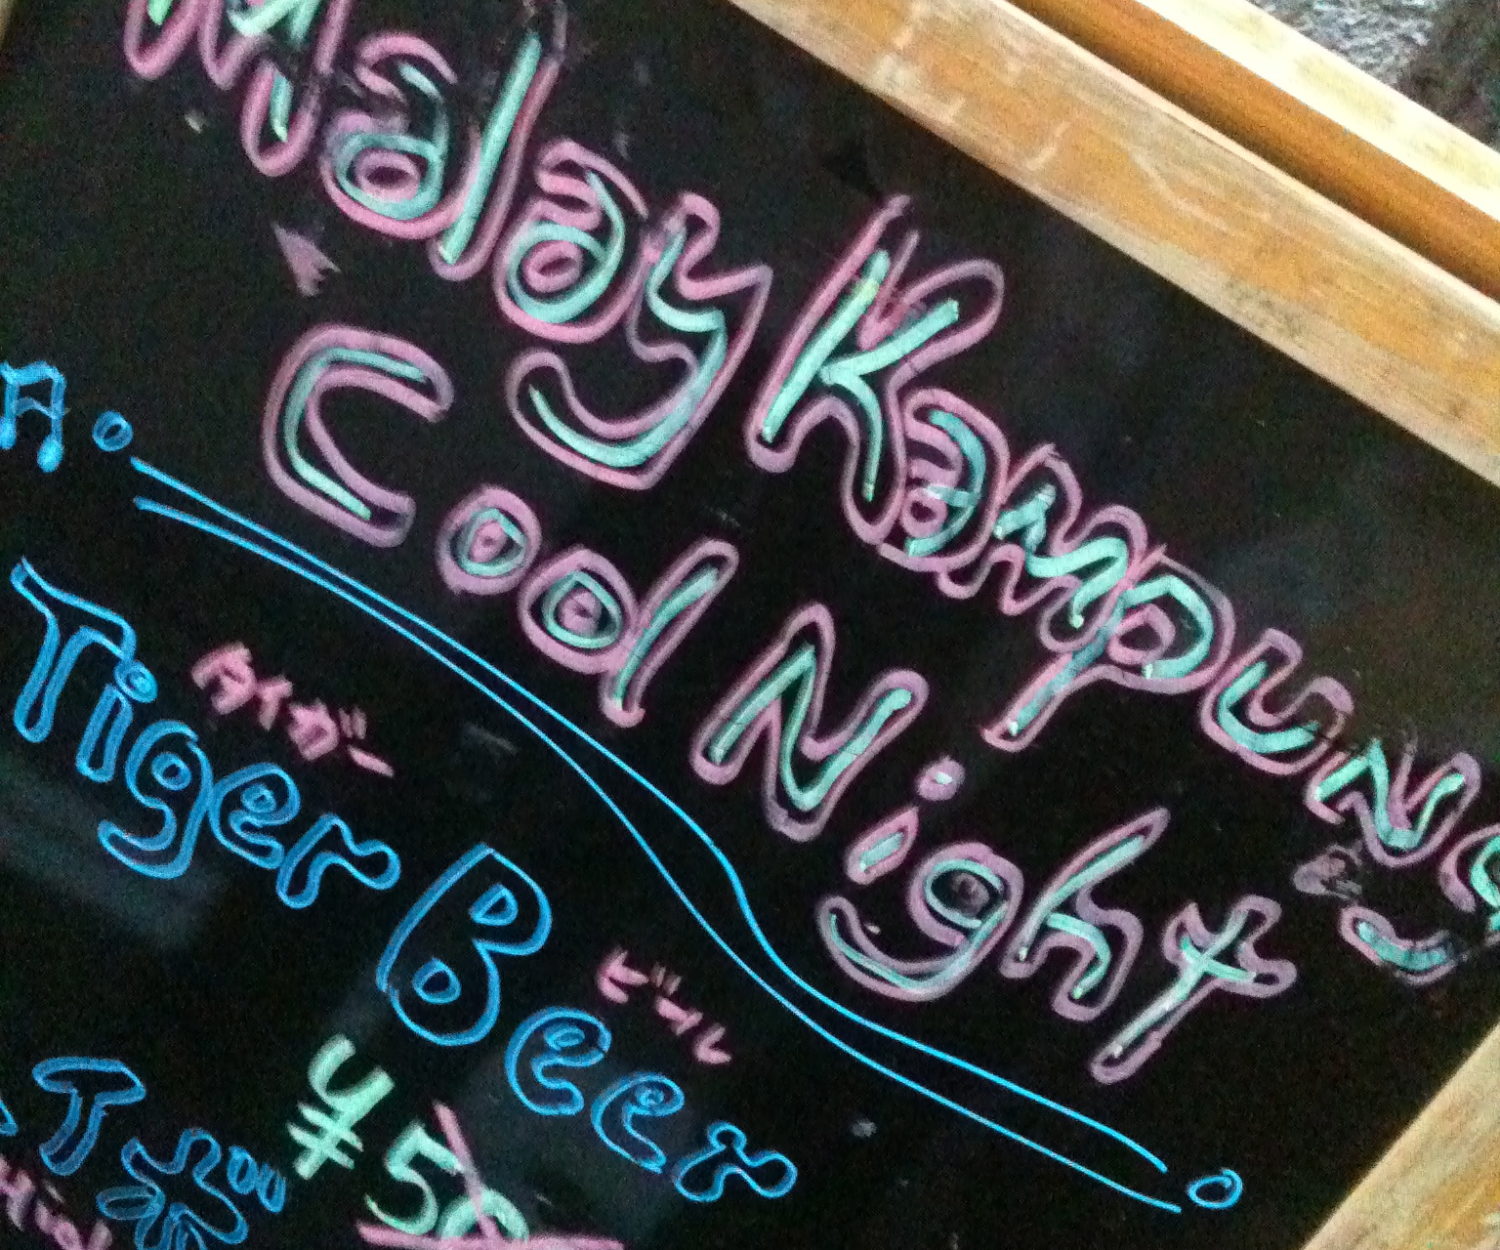 Malay Kampung
Cool Night
タイガー
Tiger Beer
ビール